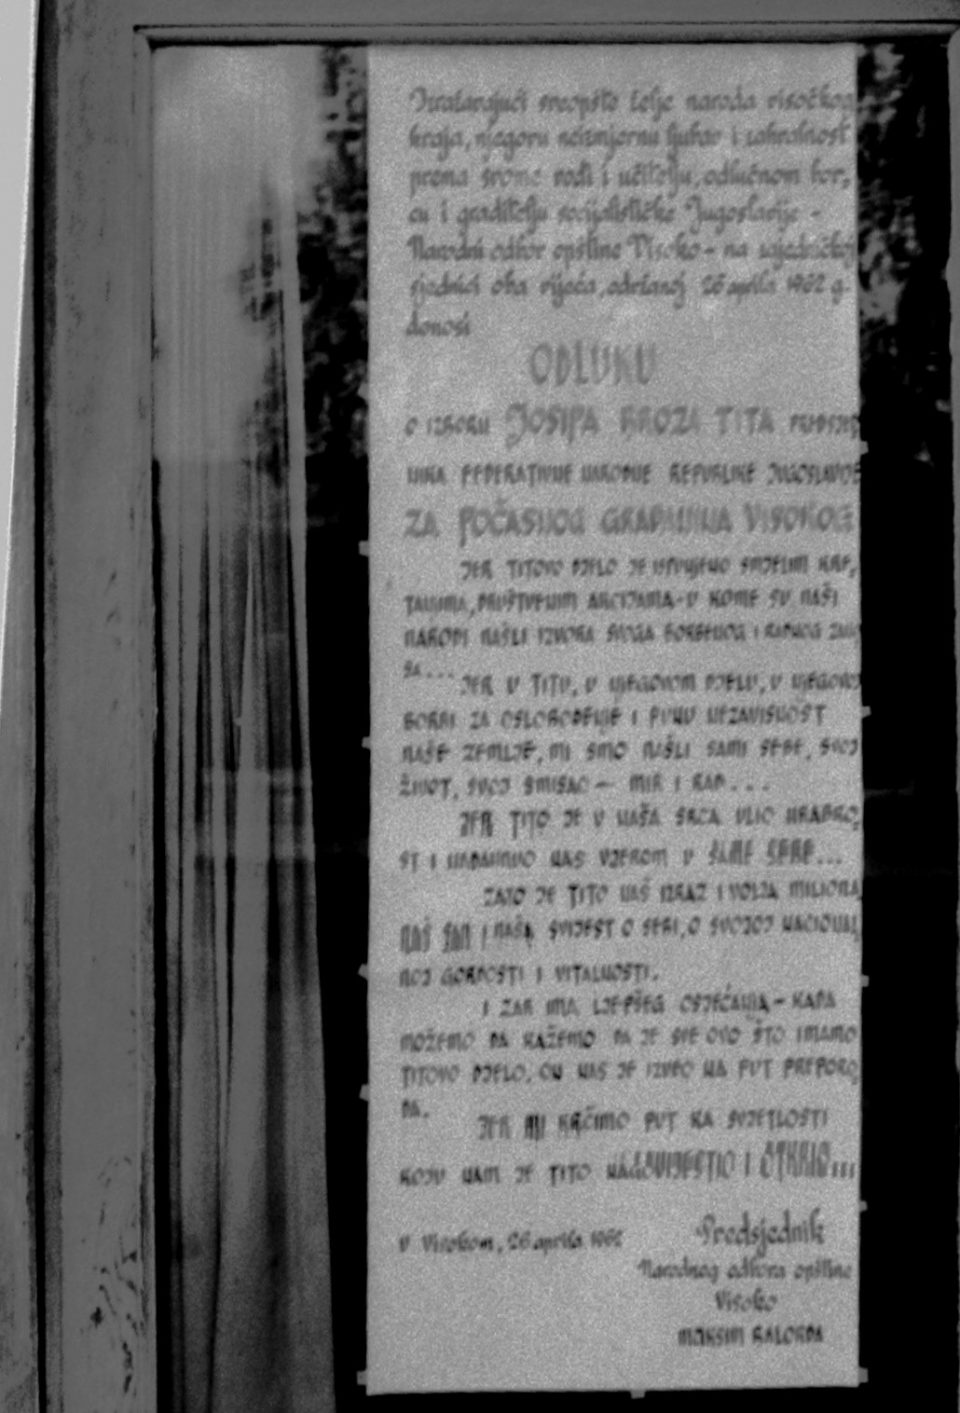 Izražavajući sveopšte želje naroda visočkog
kraja, njegovu neizmjernu ljubav i zahvalnost
prema svome vođi i učitelju, odlučnom bor,
cu i graditelju socijalističke Jugoslavije -
Narodni odbor opštine Visoko - na zajedničkoj
sjednici oba vijeća, održanoj 26 aprila 1962 g.
donosi
ODLUKU
O IZBORU JOSIPA BROZA TITA PREDSJED
NIKA FEDERATIVNE NARODNE REPUBLIKE JUGOSLAVIJE
ZA POČASNOG GRAĐANINA VISOKOG
JER TITOVO DJELO JE ISPUNJENO SMJELIM
DRUŠTVENIM AKCIJAMA - U KOME SU NAŠI
NARODI NAŠLI IZVORA SVOGA BORBENOG I RADNOG
JER U TITU, U NJEGOVOM DJELU, U NJEGOVOJ
BORBI ZA OSLOBOĐENJE I PUNU NEZAVISNOST
NAŠE ZEMLJE, MI SMO NAŠLI SAMI SEBE, SVOJ
ŽIVOT, SVOJ SMISAO - MIR I RAD...
JER TITO JE U NAŠA SRCA ULIO HRABRO,
ST I NADAHNUO NAS VJEROM U SAME SEBE...
ZATO JE TITO NAŠ IZRAZ I VOLJA MILIONA,
NAŠ SAN I NAŠA SVIJEST O SEBI, O SVOJOJ NACIONAL
NOJ GORDOSTI I VITALNOSTI.
I ZAR IMA LJEPŠEG OSJEĆANJA - KADA
MOŽEMO DA KAŽEMO DA JE SVE OVO ŠTO IMAMO
TITOVO DJELO, ON NAS JE IZVEO NA PUT PREPORO,
DA.
JER MI KRČIMO PUT KA SVJETLOSTI
KOJU NAM JE TITO NAGOVIJESTIO I OTKRIO...
U Visokom, 26 aprila 1962
Predsjednik
Narodnog odbora opštine
Visoko
MAKSIM BALORDA